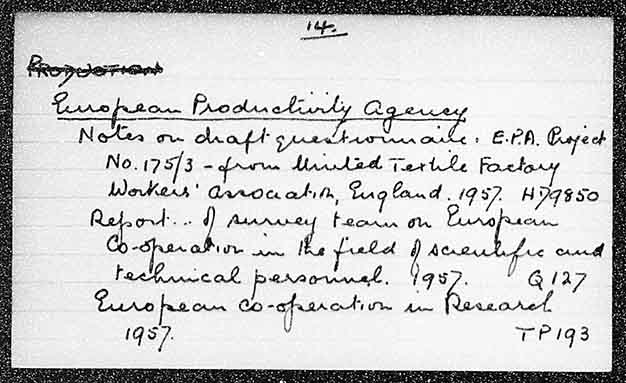 14.
PRODUCTION
European Productivity Agency
Notes on draft questionnaire. E.P.A. Project
No. 175/3 - from United Textile Factory
Workers' Association, England. 1957. H79850
Report... of survey team on European
Co-operation in the field of scientific and
technical personnel. 1957. Q127
European co-operation in Research
1957. TP193